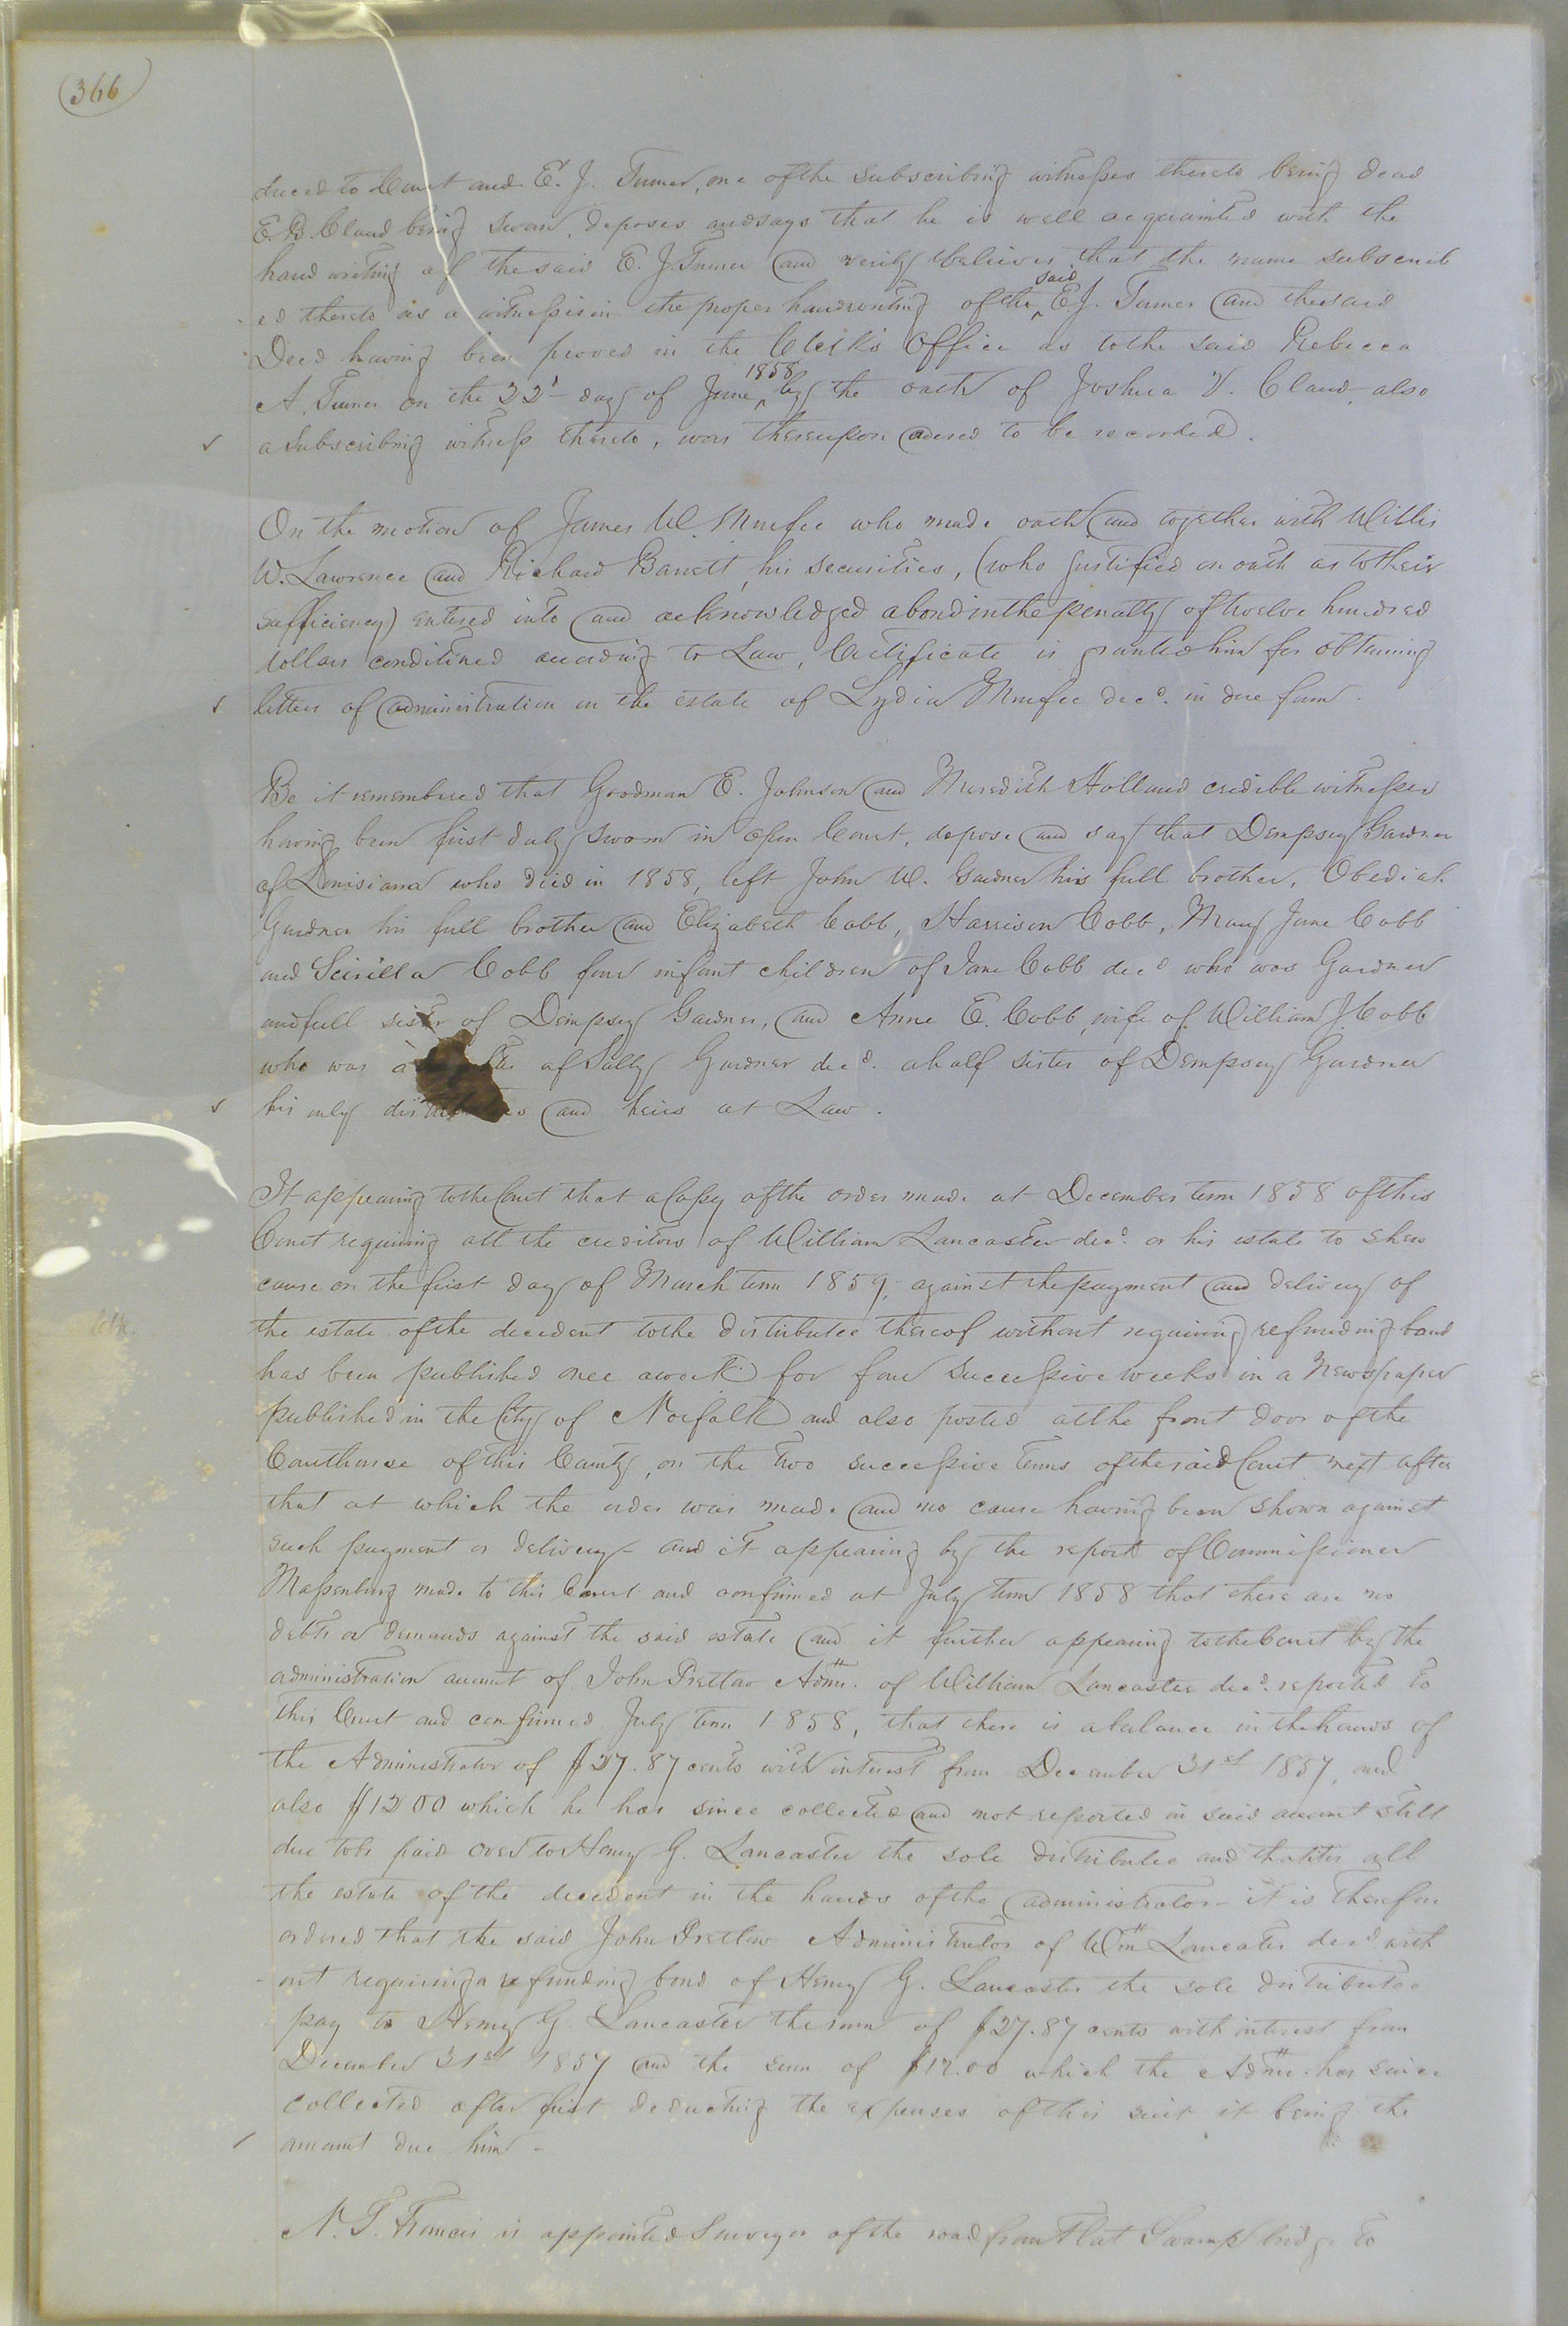 (366)
duced to Court and E. J. Turner, one of the subscribing witnesses thereto being dead
E. B. Claud being sworn, deposes and says that he is well acquainted with the
hand writing of the said E. J. Turner and verily believes that the name subscrib
ed thereto as a witness is in the proper handwriting of the said E. J. Turner and the said
Deed having been proved in the Clerk's Office as to the said Rebecca
A. Turner on the 22d day of June 1858 by the oath of Joshua V. Claud, also
a subscribing witness thereto, was thereupon ordered to be recorded.
On the motion of James W. Murfee who made oath and together with Willis
W. Lawrence and Richard Barrett, his securities, (who justified on oath as to their
sufficiency) entered into and acknowledged a bond in the penalty of twelve hundred
dollars conditined according to Law, Certificate is granted him for obtaining
letters of administration on the estate of Lydia Murfee decd. in due form.
Be it remembered that Goodman E. Johnson and Meredith Holland credible witnesses
having been first duly sworn in open Court, depose and say that Dempsey Gardner
of Louisiana who died in 1858, left John W. Gardner his full brother, Obediah
Gardner his full brother and Elizabeth Cobb, Harrison Cobb, Mary Jane Cobb
and Cobb four infant children of Jane Cobb decd who was Gardner
and full sister of Dempsey Gardner, and Anne E. Cobb, wife of William J. Cobb
who was a of Sally Gardner decd. a half sister of Dempsey Gardner
his only and heirs at Law.
It appearing to the Court that a Copy of the order made at December term 1858 of this
Court requiring all the creditors of William Lancaster decd. or his estate to shew
cause on the first day of March term 1859, against the payment and delivery of
the estate of the decedent to the distributee thereof without requiring refunding bond
has been published once a week for four successive weeks in a Newspaper
published in the City of Norfolk and also posted at the front door of the
Courthouse of this County, on the two successive terms of the said Court next after
that at which the order was made and no cause having been shown against
such payment or delivery - and it appearing by the report of Commissioner
Massenburg made to this Court and confirmed at July term 1858 that there are no
debts or demands against the said estate and it further appearing to the Court by the
administration account of John Pretlow Admr. of William Lancaster decd. reported to
this Court and confirmed July term 1858, that there is a balance in the hands of
the Administrator of $27.87 cents with interest from December 31st 1857, and
also $12 00 which he has since collected and not reported in said account still
due to be paid over to Henry G. Lancaster the sole distributee and that its all
the estate of the decedent in the hands of the administrator - it is therefore
ordered that the said John Pretlow Administrator of Wm Lancaster decd with
out requiring a refunding bond of Henry G. Lancaster the sole distributee
pay to Henry G. Lancaster the sum of $27.87 cents with interest from
December 31st 1857 and the sum of $12.00 which the Admr. has since
collected after first deducting the expenses of this suit it being the
amount due him -
N. T. Francis is appointed Surveyor of the road from Flat Swamp bridge to